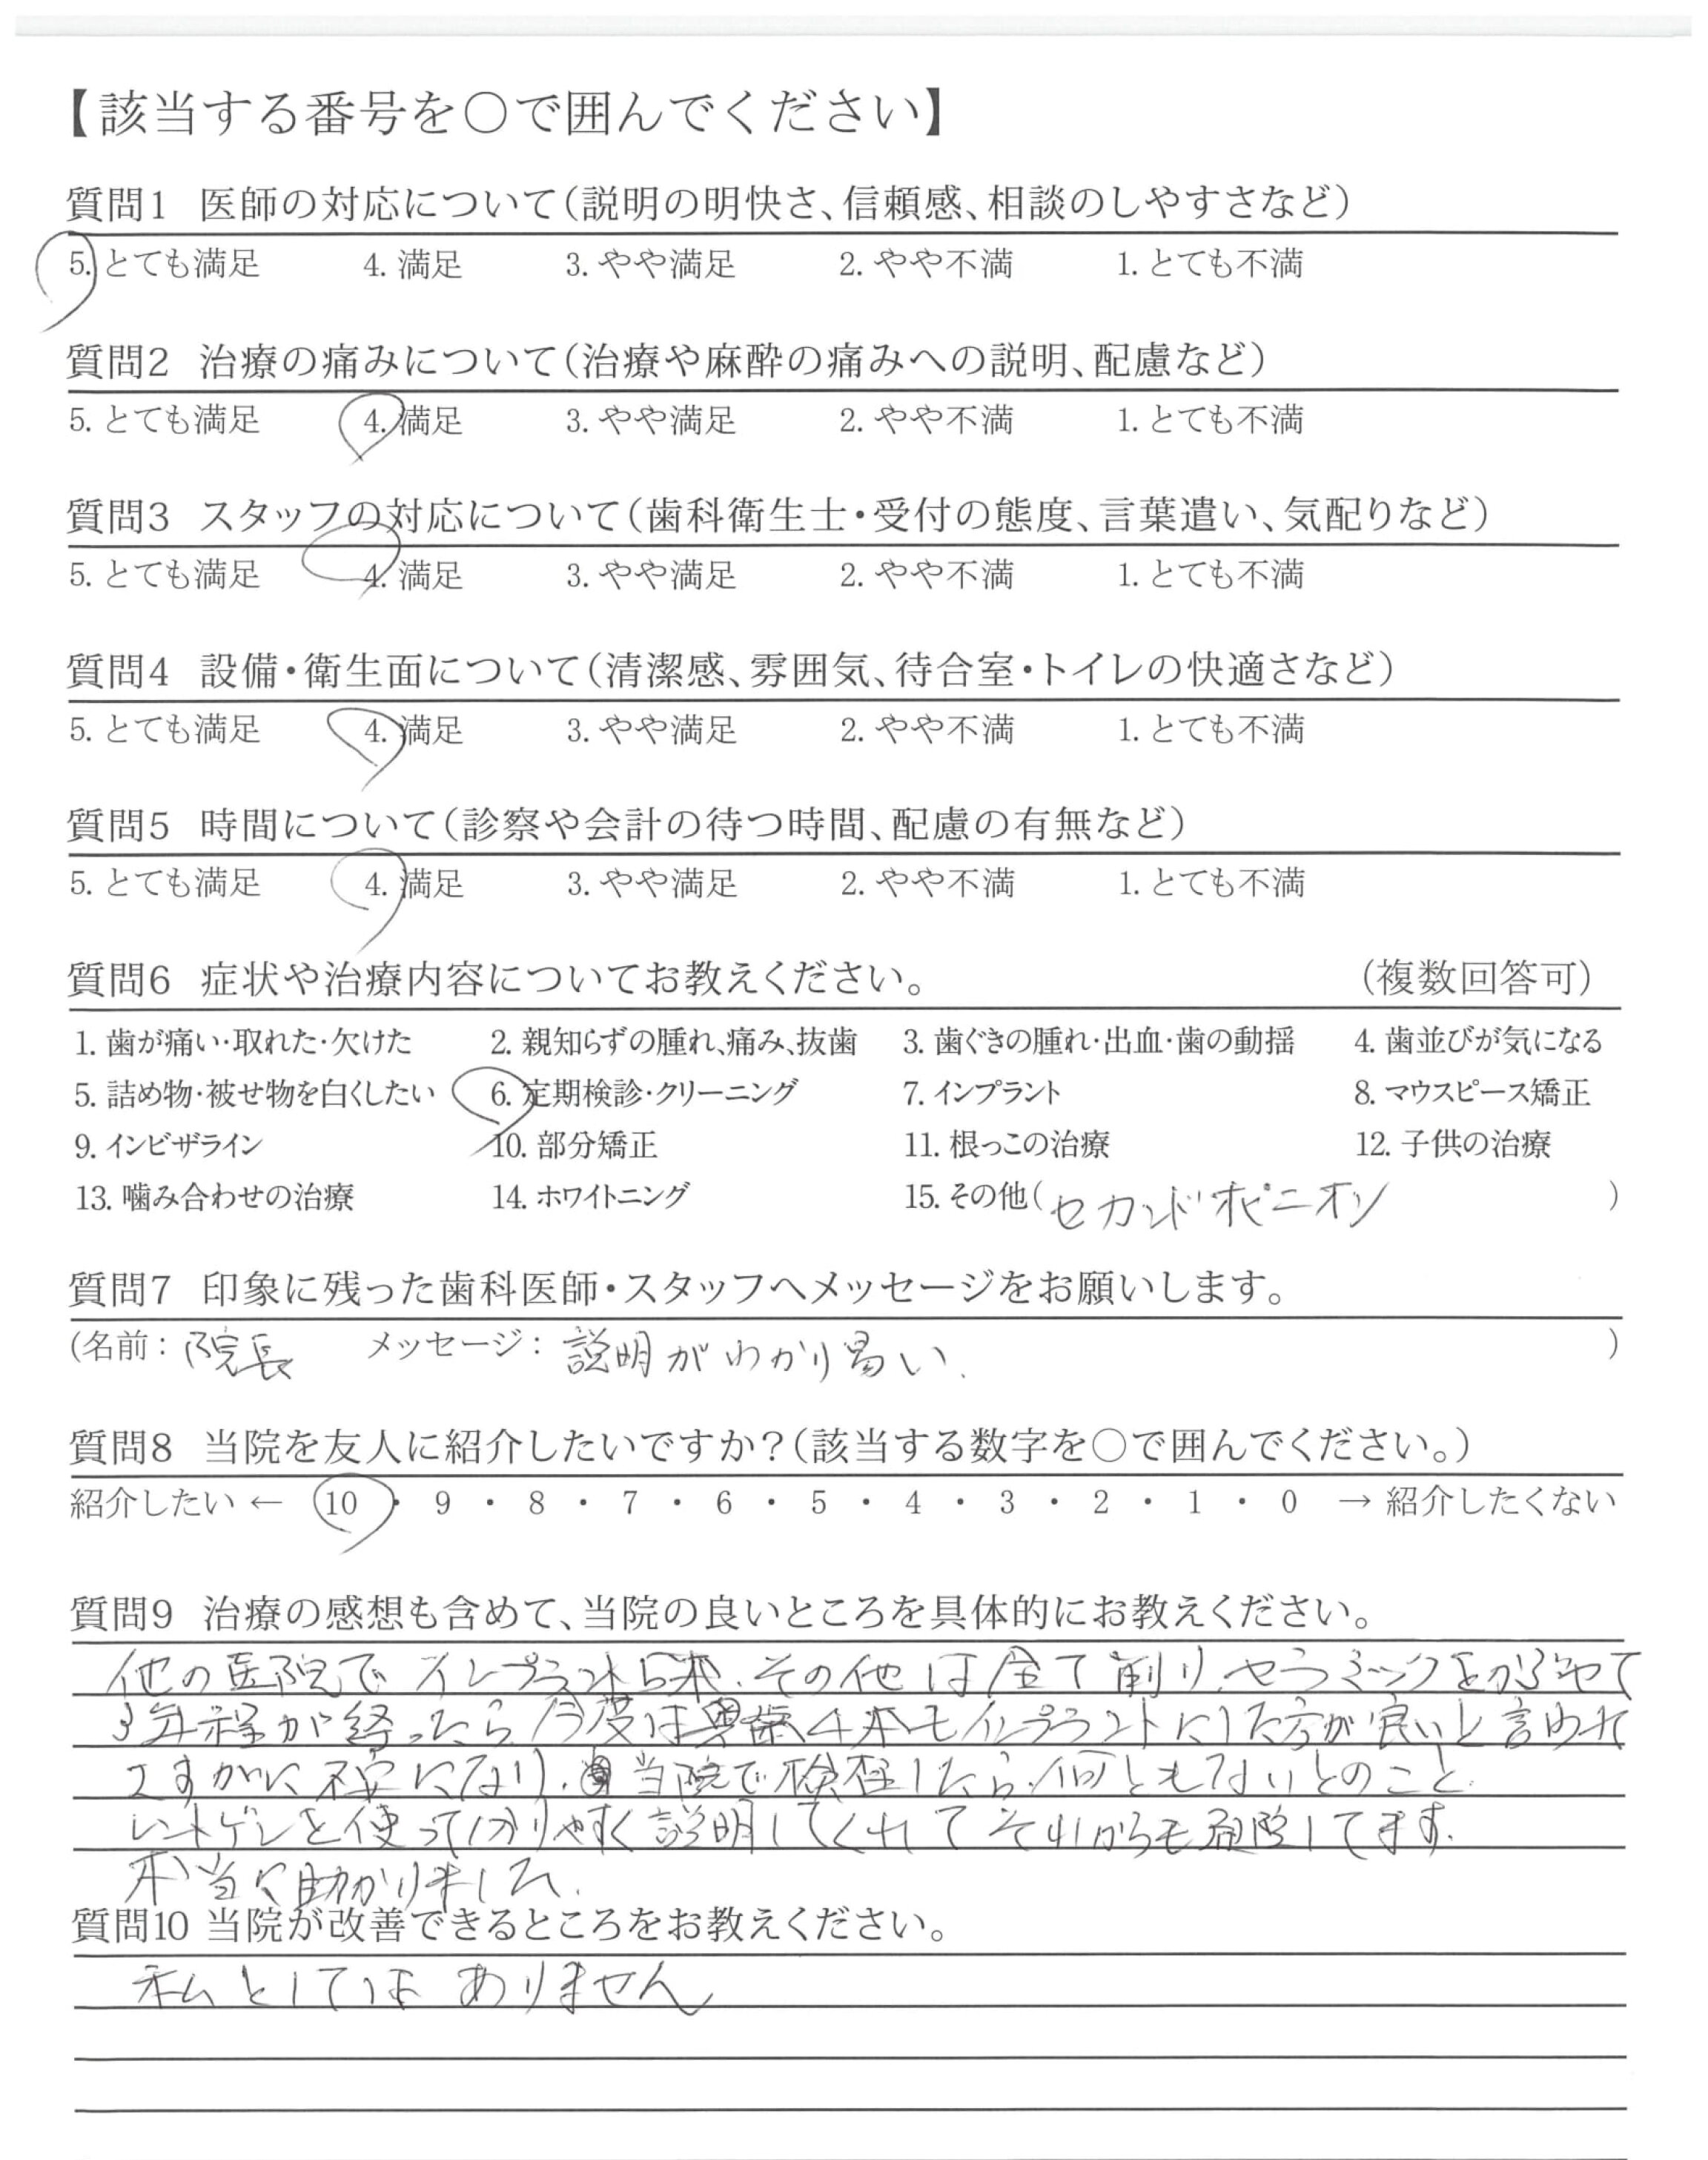 【該当する番号を○で囲んでください】
質問1 医師の対応について(説明の明快さ、信頼感、相談のしやすさなど)
5. とても満足 4. 満足 3. やや満足 2. やや不満 1. とても不満
質問2 治療の痛みについて(治療や麻酔の痛みへの説明、配慮など)
5. とても満足 4. 満足 3. やや満足 2. やや不満 1. とても不満
質問3 スタッフの対応について(歯科衛生士・受付の態度、言葉遣い、気配りなど)
5. とても満足 4. 満足 3. やや満足 2. やや不満 1. とても不満
質問4 設備・衛生面について(清潔感、雰囲気、待合室・トイレの快適さなど)
5. とても満足 4. 満足 3. やや満足 2. やや不満 1. とても不満
質問5 時間について(診察や会計の待つ時間、配慮の有無など)
5. とても満足 4. 満足 3. やや満足 2. やや不満 1. とても不満
質問6 症状や治療内容についてお教えください。 (複数回答可)
1. 歯が痛い・取れた・欠けた 2. 親知らずの腫れ、痛み、抜歯 3. 歯ぐきの腫れ・出血・歯の動揺 4. 歯並びが気になる
5. 詰め物・被せ物を白くしたい 6. 定期検診・クリーニング 7. インプラント 8. マウスピース矯正
9. インビザライン 10. 部分矯正 11. 根っこの治療 12. 子供の治療
13. 噛み合わせの治療 14. ホワイトニング 15. その他(セカンドオピニオン)
質問7 印象に残った歯科医師・スタッフへメッセージをお願いします。
(名前:院長 メッセージ:説明がわかり易い.)
質問8 当院を友人に紹介したいですか?(該当する数字を○で囲んでください。)
紹介したい ← 10 ・ 9 ・ 8 ・ 7 ・ 6 ・ 5 ・ 4 ・ 3 ・ 2 ・ 1 ・ 0 → 紹介したくない
質問9 治療の感想も含めて、当院の良いところを具体的にお教えください。
他の医院でインプラント5本、その他は全て削り、セラミックをかぶせて
3年程が経ったら今度は奥歯4本もインプラントにした方が良いと言われ
さすがに不安になり、当院で検査したら、何ともないとのこと.
レントゲンを使って分りやすく説明してくれてそれからも通院してます.
本当に助かりました.
質問10 当院が改善できるところをお教えください。
私としては ありません